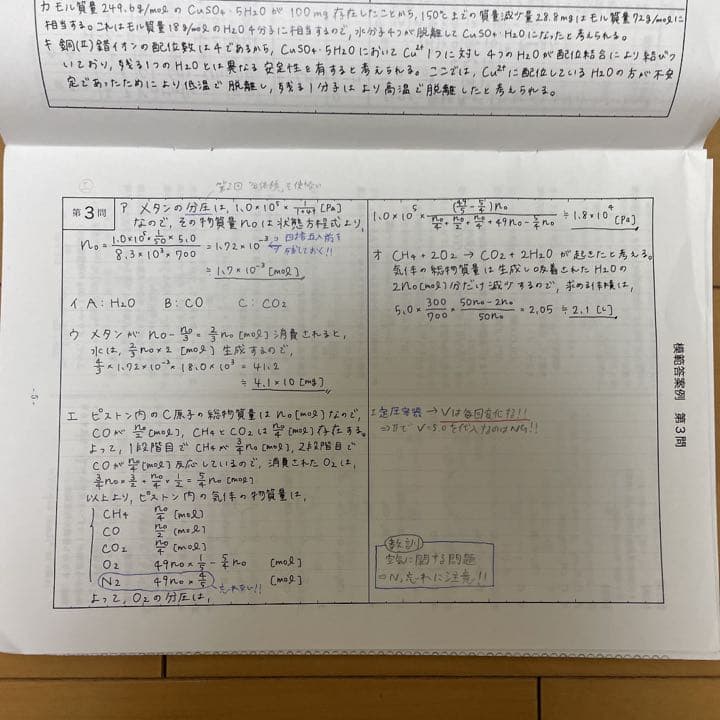 カ モル質量 249.6g/molの CuSO4・5H2O が 100 mg 存在したことから, 150℃までの質量減少量 28.8mgはモル質量72g/molに
相当する。これはモル質量18g/molのH2O 4分子に相当するので, 水分子4つが脱離してCuSO4・H2Oになったと考えられる。
キ 銅(II)錯イオンの配位数は4であるから, CuSO4・5H2OにおいてCu2+ 1つに対し4つのH2Oが配位結合により結びつ
いており, 残る1つのH2Oとは異なる安定性を有すると考えられる。ここでは, Cu2+に配位しているH2Oの方が不安
定であったためにより低温で脱離し, 残る1分子はより高温で脱離したと考えられる。
第3問
ア メタンの分圧は, 1.0×10^5 × 1/(1+49) [Pa]
なので, その物質量n0は状態方程式より,
n0 = (1.0×10^5 × 1/50 × 5.0)/(8.3×10^3 × 700) = 1.72×10^-3
≒ 1.7×10^-3 [mol]
イ A: H2O B: CO C: CO2
ウ メタンが n0 - n0/3 = 2/3 n0 [mol] 消費されると,
水は, 2/3 n0×2 [mol] 生成するので,
4/3 × 1.72×10^-3 × 18.0×10^3 = 41.2
≒ 4.1×10 [mg]
エ ピストン内のC原子の総物質量は n0[mol]なので,
COが n0/2 [mol], CH4とCO2は n0/4 [mol]存在する。
よって, 1段階目で CH4が 3/4 n0[mol], 2段階目で
COが n0/4 [mol] 反応しているので, 消費された O2は,
3/4 n0 × 3/2 + n0/4 × 1/2 = 5/4 n0 [mol]
以上より, ピストン内の気体の物質量は,
CH4 n0/4 [mol]
CO n0/2 [mol]
CO2 n0/4 [mol]
O2 49n0 × 1/5 - 5/4 n0 [mol]
N2 49n0 × 4/5 [mol]
忘れない!!
よって, O2の分圧は,
1.0×10^5 × (49/5 - 5/4)n0 / (n0/4 + n0/2 + n0/4 + 49n0 - 5/4 n0) ≒ 1.8×10^4 [Pa]
オ CH4 + 2O2 → CO2 + 2H2O が起きたと考える。
気体の総物質量は生成し吸着された H2Oの
2n0[mol]分だけ減少するので, 求める体積は,
5.0 × 300/700 × (50n0 - 2n0)/50n0 = 2.05 ≒ 2.1 [L]
エ 定圧容器 → Vは毎回変化する!!
⇒エで V=5.0を代入するのはNG!!
教訓
空気に関する問題
N2忘れに注意!!
模範答案例 第3問
- 5 -